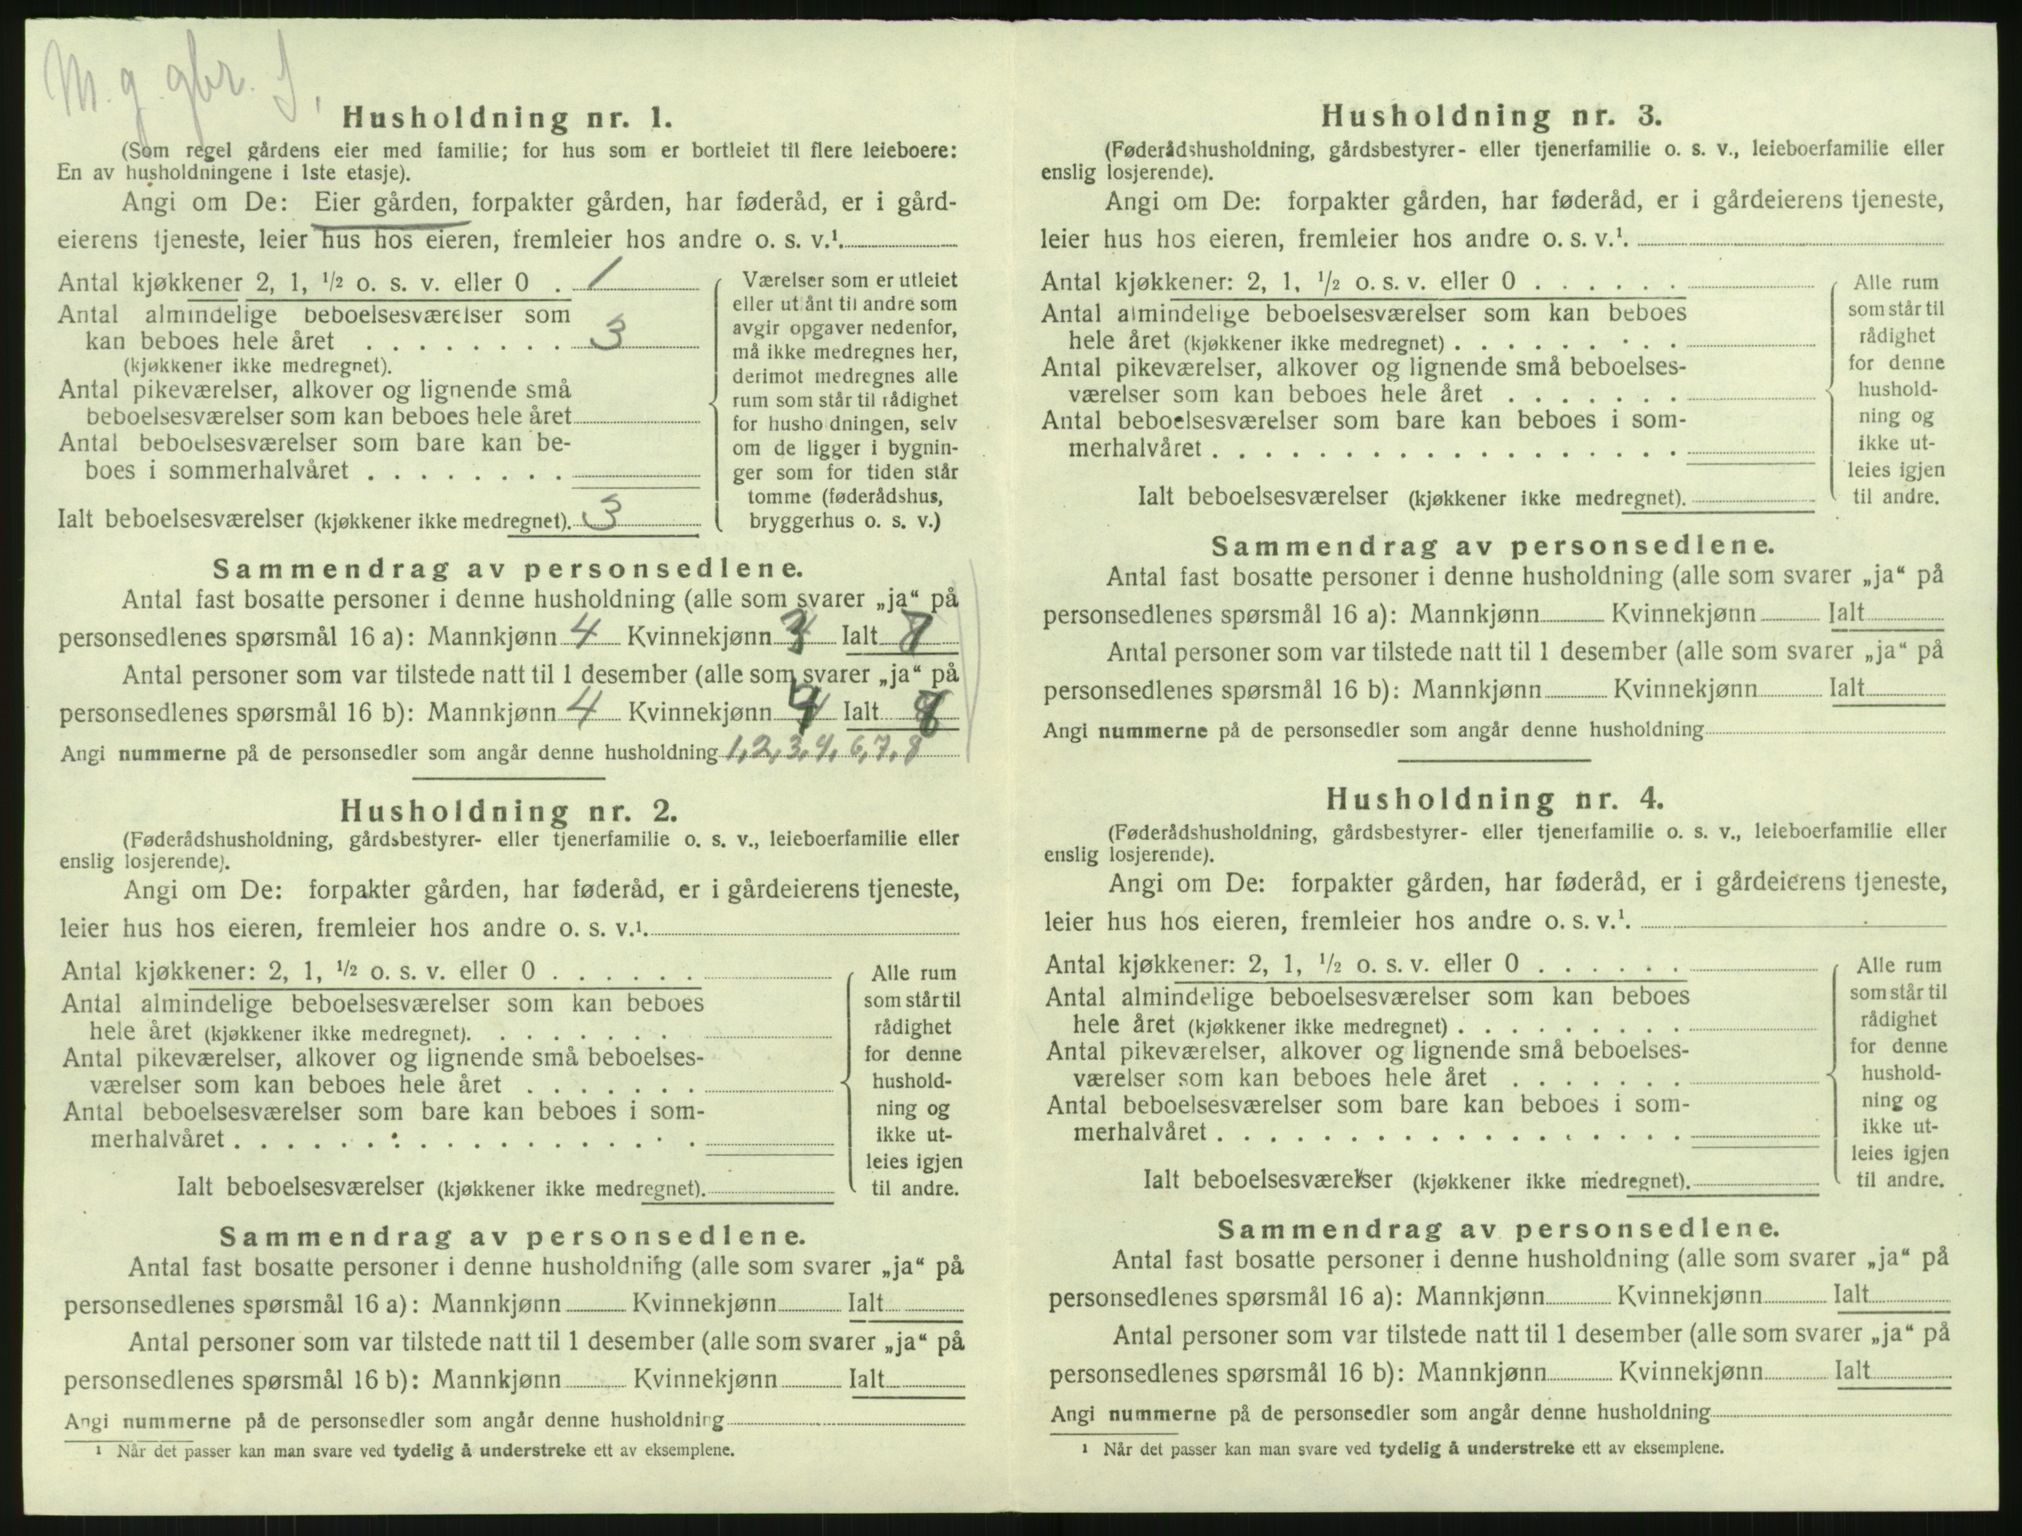 M. g. gbr. S.
Husholdning nr. 1.
(Som regel gårdens eier med familie; for hus som er bortleiet til flere leieboere:
En av husholdningene i 1ste etasje).
Angi om De: Eier gården, forpakter gården, har føderåd, er i gård-
eierens tjeneste, leier hus hos eieren, fremleier hos andre o. s. v.¹
Antal kjøkkener 2, 1, ½ o. s. v. eller 0 . 1
Antal almindelige beboelsesværelser som
kan beboes hele året . . . . . . . . 3
(kjøkkener ikke medregnet).
Antal pikeværelser, alkover og lignende små
beboelsesværelser som kan beboes hele året
Antal beboelsesværelser som bare kan be-
boes i sommerhalvåret . . . . . . . .
Ialt beboelsesværelser (kjøkkener ikke medregnet). 3
Værelser som er utleiet
eller ut ånt til andre som
avgir opgaver nedenfor,
må ikke medregnes her,
derimot medregnes alle
rum som står til rådighet
for husho dningen, selv
om de ligger i bygnin-
ger som for tiden står
tomme (føderådshus,
bryggerhus o. s. v.)
Sammendrag av personsedlene.
Antal fast bosatte personer i denne husholdning (alle som svarer „ja“ på
personsedlenes spørsmål 16 a): Mannkjønn 4 Kvinnekjønn 3 Ialt 7
Antal personer som var tilstede natt til 1 desember (alle som svarer „ja“ på
personsedlenes spørsmål 16 b): Mannkjønn 4 Kvinnekjønn 4 Ialt 8
Angi nummerne på de personsedler som angår denne husholdning 1, 2, 3, 4, 6, 7, 8
Husholdning nr. 2.
(Føderådshusholdning, gårdsbestyrer- eller tjenerfamilie o. s. v., leieboerfamilie eller
enslig losjerende).
Angi om De: forpakter gården, har føderåd, er i gårdeierens tjeneste,
leier hus hos eieren, fremleier hos andre o. s. v.¹.
Antal kjøkkener: 2, 1, ½ o. s. v. eller 0 . . . . . .
Antal almindelige beboelsesværelser som kan beboes
hele året (kjøkkener ikke medregnet). . . . . . . .
Antal pikeværelser, alkover og lignende små beboelses-
værelser som kan beboes hele året . . . . . . .
Antal beboelsesværelser som bare kan beboes i som-
merhalvåret . . . . . . . . . . . . . . . . . .
Ialt beboelsesværelser (kjøkkener ikke medregnet).
Alle rum
som står til
rådighet
for denne
hushold-
ning og
ikke ut-
leies igjen
til andre.
Sammendrag av personsedlene.
Antal fast bosatte personer i denne husholdning (alle som svarer „ja“ på
personsedlenes spørsmål 16 a): Mannkjønn Kvinnekjønn Ialt
Antal personer som var tilstede natt til 1 desember (alle som svarer „ja“ på
personsedlenes spørsmål 16 b): Mannkjønn Kvinnekjønn Ialt
Angi nummerne på de personsedler som angår denne husholdning
¹ Når det passer kan man svare ved tydelig å understreke ett av eksemplene.
Husholdning nr. 3.
(Føderådshusholdning, gårdsbestyrer- eller tjenerfamilie o. s. v., leieboerfamilie eller
enslig losjerende).
Angi om De: forpakter gården, har føderåd, er i gårdeierens tjeneste,
leier hus hos eieren, fremleier hos andre o. s. v.¹.
Antal kjøkkener: 2, 1, ½ o. s. v. eller 0 . . . . . .
Antal almindelige beboelsesværelser som kan beboes
hele året (kjøkkener ikke medregnet) . . . . . . . . .
Antal pikeværelser, alkover og lignende små beboelses-
værelser som kan beboes hele året . . . . . . .
Antal beboelsesværelser som bare kan beboes i som-
merhalvåret . . . . . . . . . . . . . . . . . .
Ialt beboelsesværelser (kjøkkener ikke medregnet).
Alle rum
som står til
rådighet
for denne
hushold-
ning og
ikke ut-
leies igjen
til andre.
Sammendrag av personsedlene.
Antal fast bosatte personer i denne husholdning (alle som svarer „ja“ på
personsedlenes spørsmål 16 a): Mannkjønn Kvinnekjønn Ialt
Antal personer som var tilstede natt til 1 desember (alle som svarer „ja“ på
personsedlenes spørsmål 16 b): Mannkjønn Kvinnekjønn Ialt
Angi nummerne på de personsedler som angår denne husholdning
Husholdning nr. 4.
(Føderådshusholdning, gårdsbestyrer- eller tjenerfamilie o. s. v., leieboerfamilie eller
enslig losjerende).
Angi om De: forpakter gården, har føderåd, er i gårdeierens tjeneste,
leier hus hos eieren, fremleier hos andre o. s. v.¹.
Antal kjøkkener: 2, 1, ½ o. s. v. eller 0 . . . . . .
Antal almindelige beboelsesværelser som kan beboes
hele året (kjøkkener ikke medregnet) . . . . . . . . .
Antal pikeværelser, alkover og lignende små beboelses-
værelser som kan beboes hele året . . . . . . .
Antal beboelsesværelser som bare kan beboes i som-
merhalvåret . . . . . . . . . . . . . . . . . .
Ialt beboelsesværelser (kjøkkener ikke medregnet).
Alle rum
som står til
rådighet
for denne
hushold-
ning og
ikke ut-
leies igjen
til andre.
Sammendrag av personsedlene.
Antal fast bosatte personer i denne husholdning (alle som svarer „ja“ på
personsedlenes spørsmål 16 a): Mannkjønn Kvinnekjønn Ialt
Antal personer som var tilstede natt til 1 desember (alle som svarer „ja“ på
personsedlenes spørsmål 16 b): Mannkjønn Kvinnekjønn Ialt
Angi nummerne på de personsedler som angår denne husholdning
¹ Når det passer kan man svare ved tydelig å understreke ett av eksemplene.